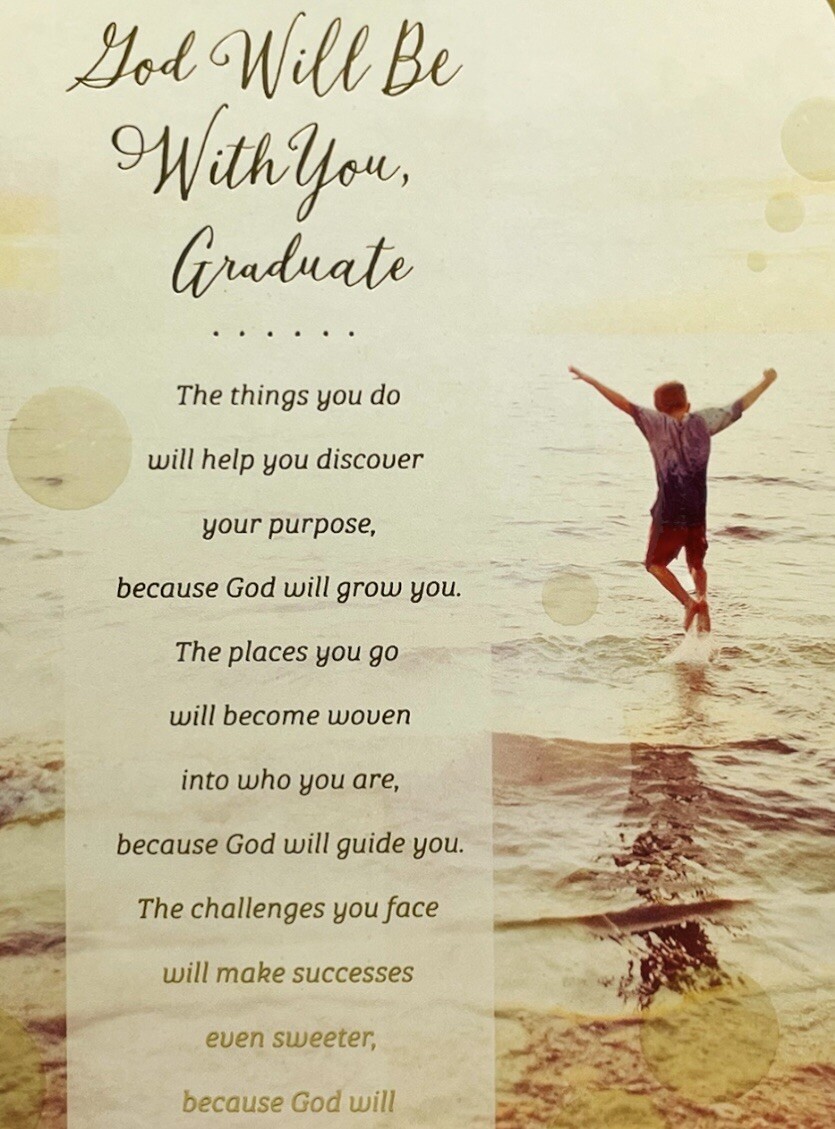 God Will Be
With You,
Graduate
......
The things you do
will help you discover
your purpose,
because God will grow you.
The places you go
will become woven
into who you are,
because God will guide you.
The challenges you face
will make successes
even sweeter,
because God will